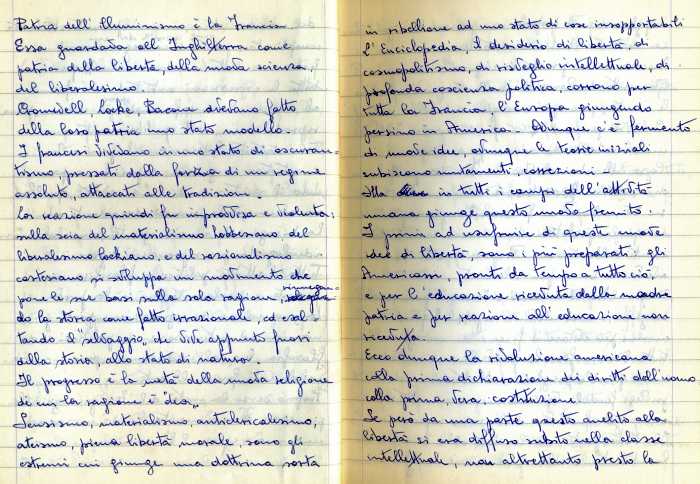 Patria dell'illuminismo è la Francia.
Essa guardava all'Inghilterra come
patria della libertà, della nuova scienza,
del liberalesimo.
Cromwell, Locke, Bacone avevano fatto
della loro patria uno stato modello.
I francesi vivevano in uno stato di oscuran-
tismo, pressati dalla forza di un regime
assoluto, attaccati alle tradizioni.
La reazione quindi fu improvvisa e violenta:
sulla scia del materialismo hobbesiano, del
liberalesimo lockiano, e del razionalismo
cartesiano si sviluppa un movimento che
pone le sue basi sulla sola ragione, rinnegan-
do la storia come fatto irrazionale, ed esal-
tando il "selvaggio" che vive appunto fuori
della storia, allo stato di natura.
Il progresso è la meta della nuova religione
di cui la ragione è "dea".
Sensismo, materialismo, anticlericalesimo,
ateismo, piena libertà morale, sono gli
estremi cui giunge una dottrina sorta
in ribellione ad uno stato di cose insopportabili
L'Enciclopedia, il desiderio di libertà, di
cosmopolitismo, di risveglio intellettuale, di
profonda coscienza politica, corrono per
tutta la Francia, l'Europa giungendo
persino in America. Ovunque c'è fermento
di nuove idee, ovunque le teorie iniziali
subiscono mutamenti, correzioni -
Ma in tutti i campi dell'attività
umana giunge questo nuovo fremito.
I primi ad usufruire di queste nuove
idee di libertà, sono i più preparati: gli
Americani, pronti da tempo a tutto ciò,
e per l'educazione ricevuta dalla madre
patria e per reazione all'educazione non
ricevuta.
Ecco dunque la rivoluzione americana
colla prima dichiarazione dei diritti dell'uomo
colla prima, vera, costituzione.
Se però da una parte questo anelito alla
libertà si era diffuso subito nella classe
intellettuale, non altrettanto presto la